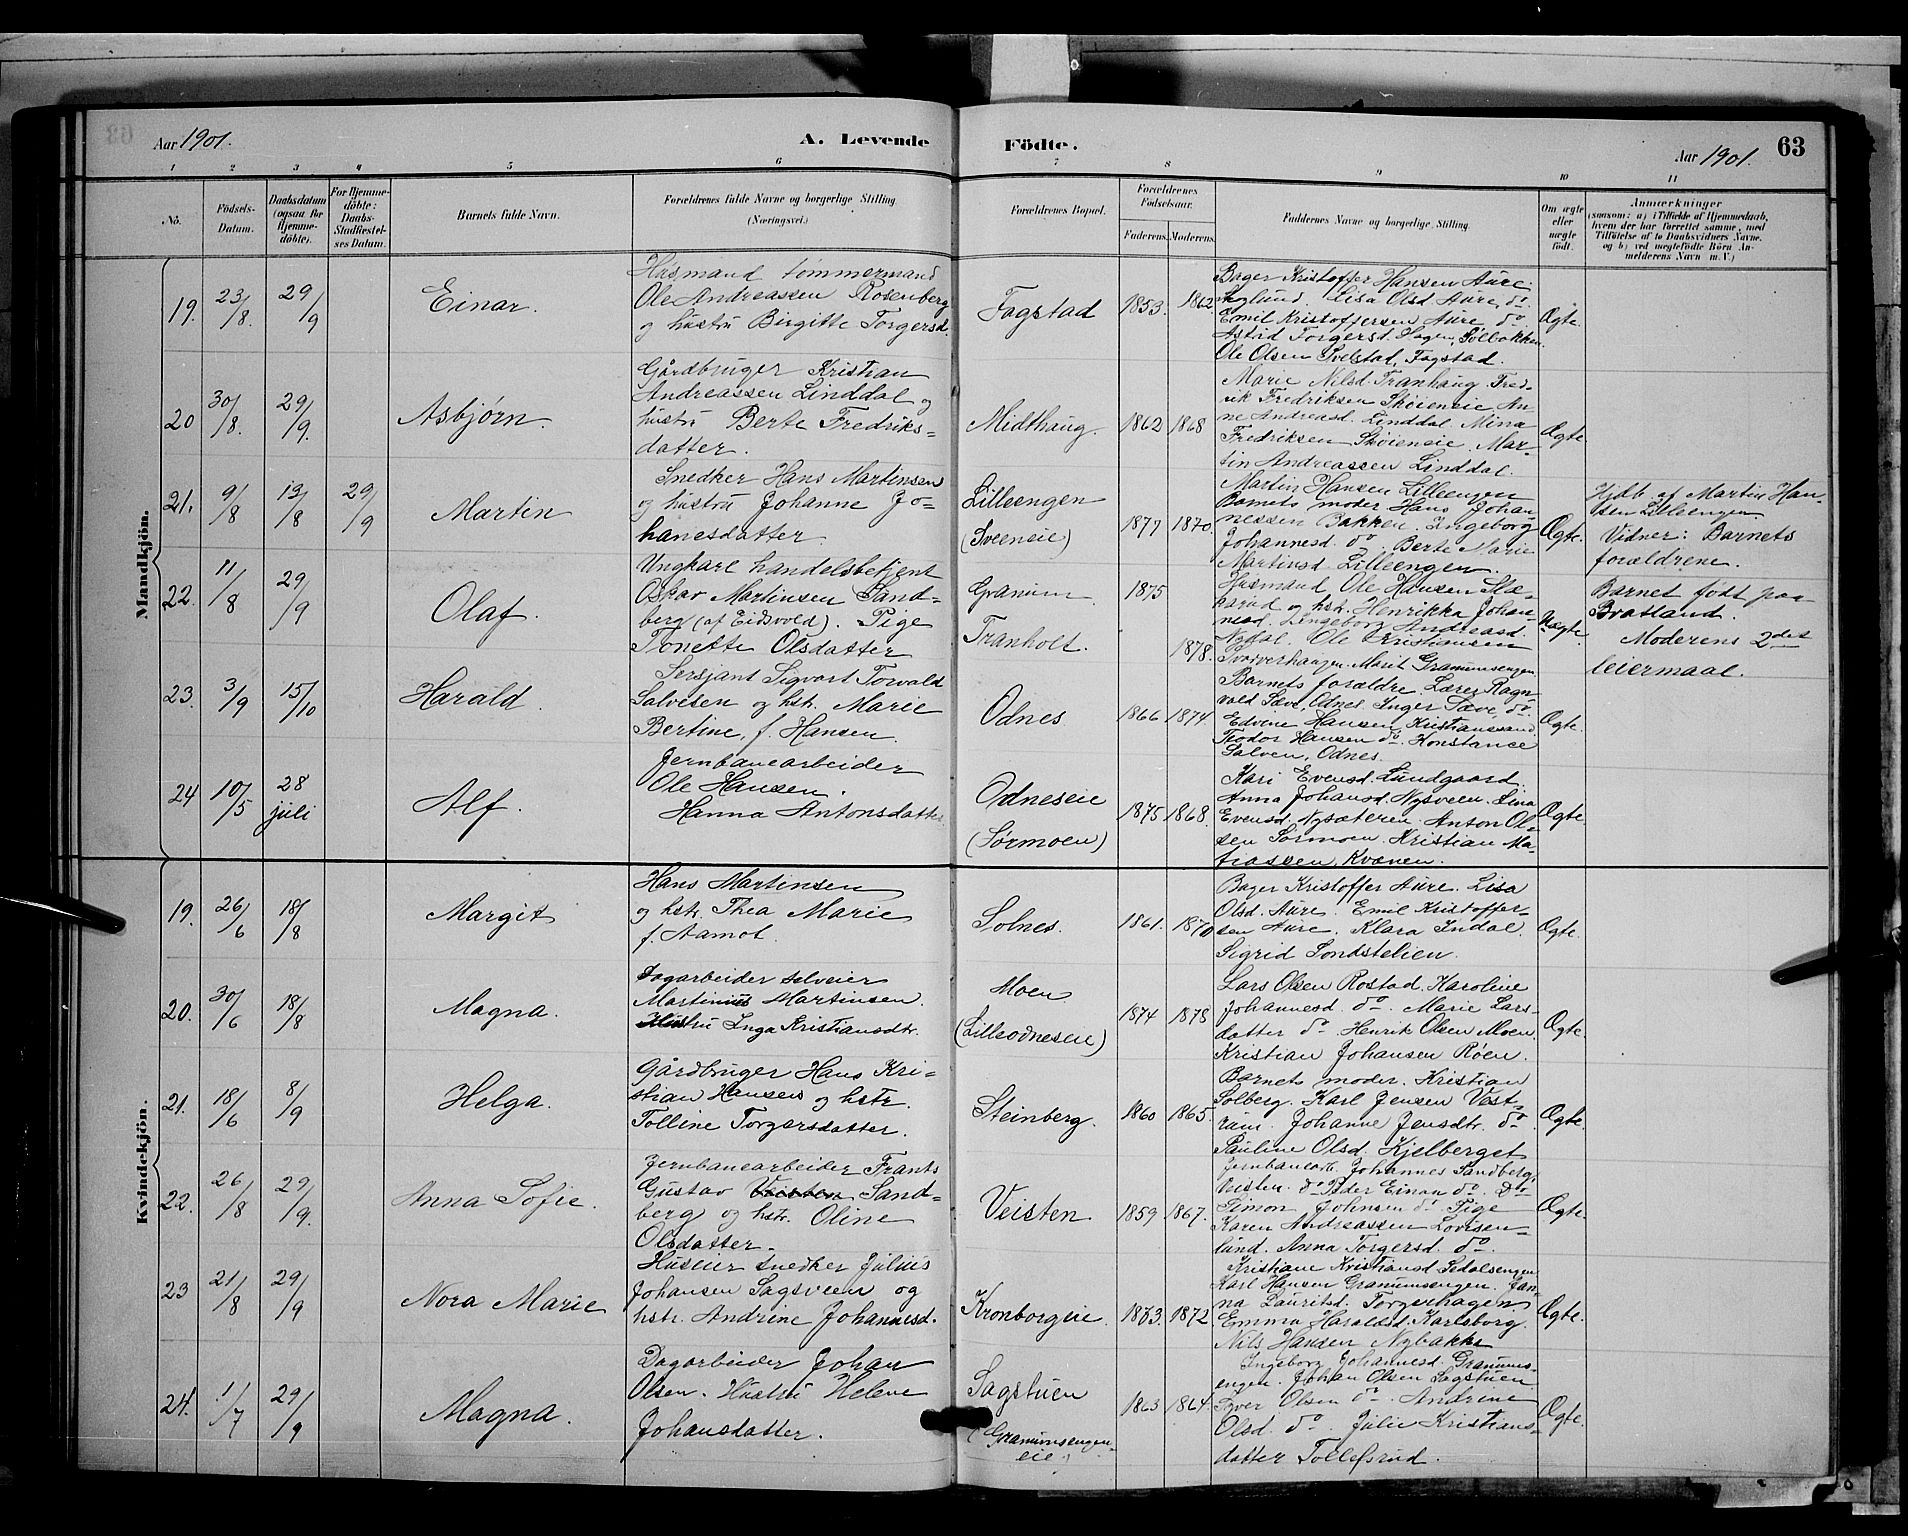 Aar 1901.
A. Levende
Födte.
Aar 1901.
63
1 2 3 4 5 6 7 8 9 10 11
No.
Födsels-
Datum.
Daabsdatum
(ogsaa for
Hjemme-
döbte).
For Hjemme-
döbte:
Daabs-
Stadfæstel-
ses Datum.
Barnets fulde Navn.
Forældrenes fulde Navne og borgerlige Stilling
(Næringsvei.)
Forældrenes Bopæl.
Forældrenes
Födselsaar.
Faderens. Moderens.
Faddernes Navne og borgerlige Stilling.
Om ægte
eller
uægte
födt.
Anmærkninger
(saasom: a) i Tilfælde af Hjemmedaab,
hvem der har forrettet samme, med
Tilföielse af to Daabsvidners Navne,
og b) ved uegtefödte Börn An-
melderens Navn m. V.)
Mandkjön.
19. 23/8. 29/9 Einar.
Husmand tømmermand
Ole Andreassen Rosenberg
og hustru Birgitte Torgersd.
Fagstad 1853. 1862.
Bager Kristoffer Hansen Aure
Lisa Olsd Aure, do.
Emil Kristoffersen Aure do.
Astrid Torgersd. Hagen,
Ole Olsen Fagstad.
Ægte.
20 30/8. 29/9. Asbjørn.
Gårdbruger Kristian
Andreassen Linddal og
hustru Berte Fredriks-
datter.
Midthaug. 1862 1868
Marie Nilsd. Tranhaug. Fred-
rik Fredriksen Skøieneie. An-
ne Andreasd. Linddal. Mina
Fredriksen Skøieneie. Mar-
tin Andreassen Linddal.
Ægte
21. 9/8 13/8 29/9 Martin
Snedker Hans Martinsen
og hustru Johanne Jo-
hanesdatter
Lilleengen
(Sveeneie)
1877 1870.
Martin Hansen Lilleengen
Barnets moder Hans Johan-
nessen Bakken. Ingeborg
Johannesd. do. Berte Marie
Martinsd. Lilleengen.
Ægte.
Hjdb. af Martin Han-
sen Lilleengen.
Vidner: Barnets
forældrene.
22. 11/8 29/9 Olaf.
Ungkarl handelsbetjent
Oskar Martinsen Sand-
berg (af Eidsvold). Pige
Tonette Olsdatter
Granum
Tranholt.
1875
1878.
Husmand Ole Hansen
og hstr. Henrikka Johan-
Andreasd.
Nydal. Ole Kristiansen
Marit Granumsengen
Uægte.
Barnet født paa
Bratland.
Moderens 2det
leiermaal.
23. 3/9 15/10 Harald.
Sersjant Sigvart Torvald
Salvesen og hstr. Marie
Bertine, f. Hansen.
Odnes. 1866 1874.
Barnets forældre Lærer Ragn-
vald Sæve, Odnes. Inger Sæve, do.
Edvine Hansen, Kristianssand
Teodor Hansen do. Konstance
Salven, Odnes.
Ægte.
24 10/5 28 juli Alf.
Jernbanearbeider
Ole Hansen.
Hanna Antonsdatter
Odneseie
(Sørmoen)
1875 1868.
Kari Evensd. Lundgaard.
Anna Johansd. Nysveen. Lina
Evensd. Nysæteren. Anton Ol-
sen Sørmoen. Kristian Ma-
tiassen, Kvænen.
Ægte.
Kvindekjön.
19. 26/6 18/8 Margit
Hans Martinsen
og hstr. Thea Marie
f. Aamot.
Solnes. 1861. 1870
Bager Kristoffer Aure. Lisa
Olsd. Aure. Emil Kristoffer-
sen Aure. Klara Indal.
Sigrid Sondstelien.
Ægte.
20. 30/6 18/8 Magna.
Dagarbeider selveier
Martinius Martinsen.
Hustru Inga Kristiansdtr.
Moen
(Lilleodneseie)
1874 1878
Lars Olsen Rostad. Karoline
Johannesd. do. Marie Lars-
datter do. Henrik Olsen Moen
Kristian Johansen Røen.
Ægte.
21. 18/6 8/9 Helga.
Gårdbruger Hans Kri-
stian Hansen og hstr.
Tolline Torgersdatter.
Steinberg. 1860 1865.
Barnets moder. Kristian
Solberg. Karl Jensen Vest-
rum. Johanne Jensdtr. do.
Pauline Olsd. Kjelberget
Ægte.
22. 26/8 29/9. Anna Sofie.
Jernbanearbeider Frants
Gustav Veisten Sand-
berg og hstr. Oline
Olsdatter.
Veisten 1859 1867.
Jernbanearb. Johannes Sandberg,
Veisten. do Peder Einan do. do
Simon Johnsen do. Pige
Karen Andreassen Lovisen-
lund. Anna Torgersd. do.
Ægte.
23 21/8 29/9 Nora Marie
Huseier snedker Julius
Johansen Sagsveen og
hstr. Andrine Johannesd.
Kronborgeie. 1873. 1872.
Kristiane Kristiansd. Sedalsengen
Karl Hansen Granumsengen. Jan-
na Lauritsd. Torgerhagen
Emma Haraldsd. Karlsborg.
Nils Hansen Nybakke
Ægte.
24. 1/7 29/9 Magna.
Dagarbeider Johan
Olsen. Hustru Helene
Johansdatter.
Sagstuen
(Granumsengen-
eie)
1863 1864.
Ingeborg Johannesd. Granums-
engen. Johan Olsen Sagstuen
Iver Olsen do. Andrine
Olsd. do. Julie Kristians-
datter Tollefsrud.
Ægte.